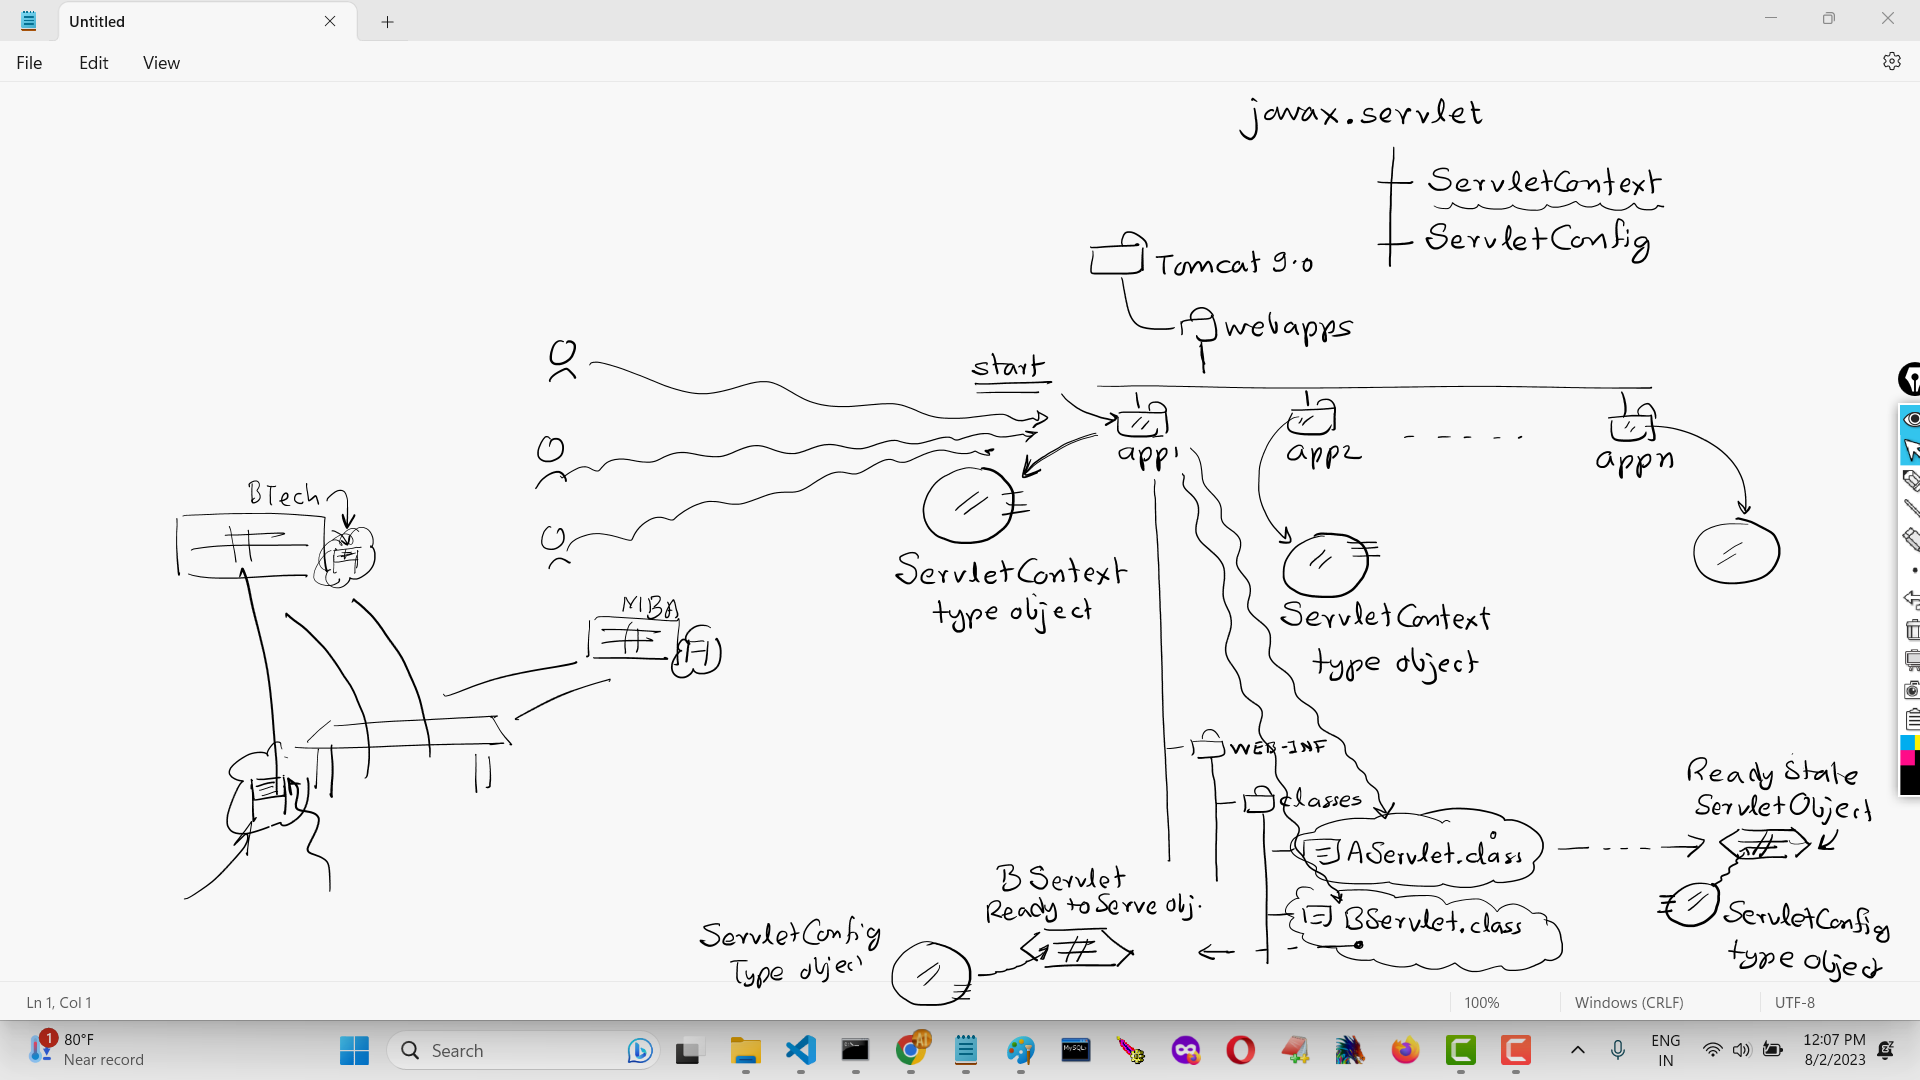 Untitled
File Edit View
javax.servlet
ServletContext
ServletConfig
Tomcat 9.0
webapps
start
app1
app2
appn
BTech
MBA
ServletContext
type object
ServletContext
type object
WEB-INF
classes
AServlet.class
BServlet.class
Ready State
ServletObject
ServletConfig
type object
B Servlet
Ready to Serve obj.
ServletConfig
Type object
Ln 1, Col 1
100%
Windows (CRLF)
UTF-8
1
80°F
Near record
Search
AI
MySQL
ENG
IN
12:07 PM
8/2/2023